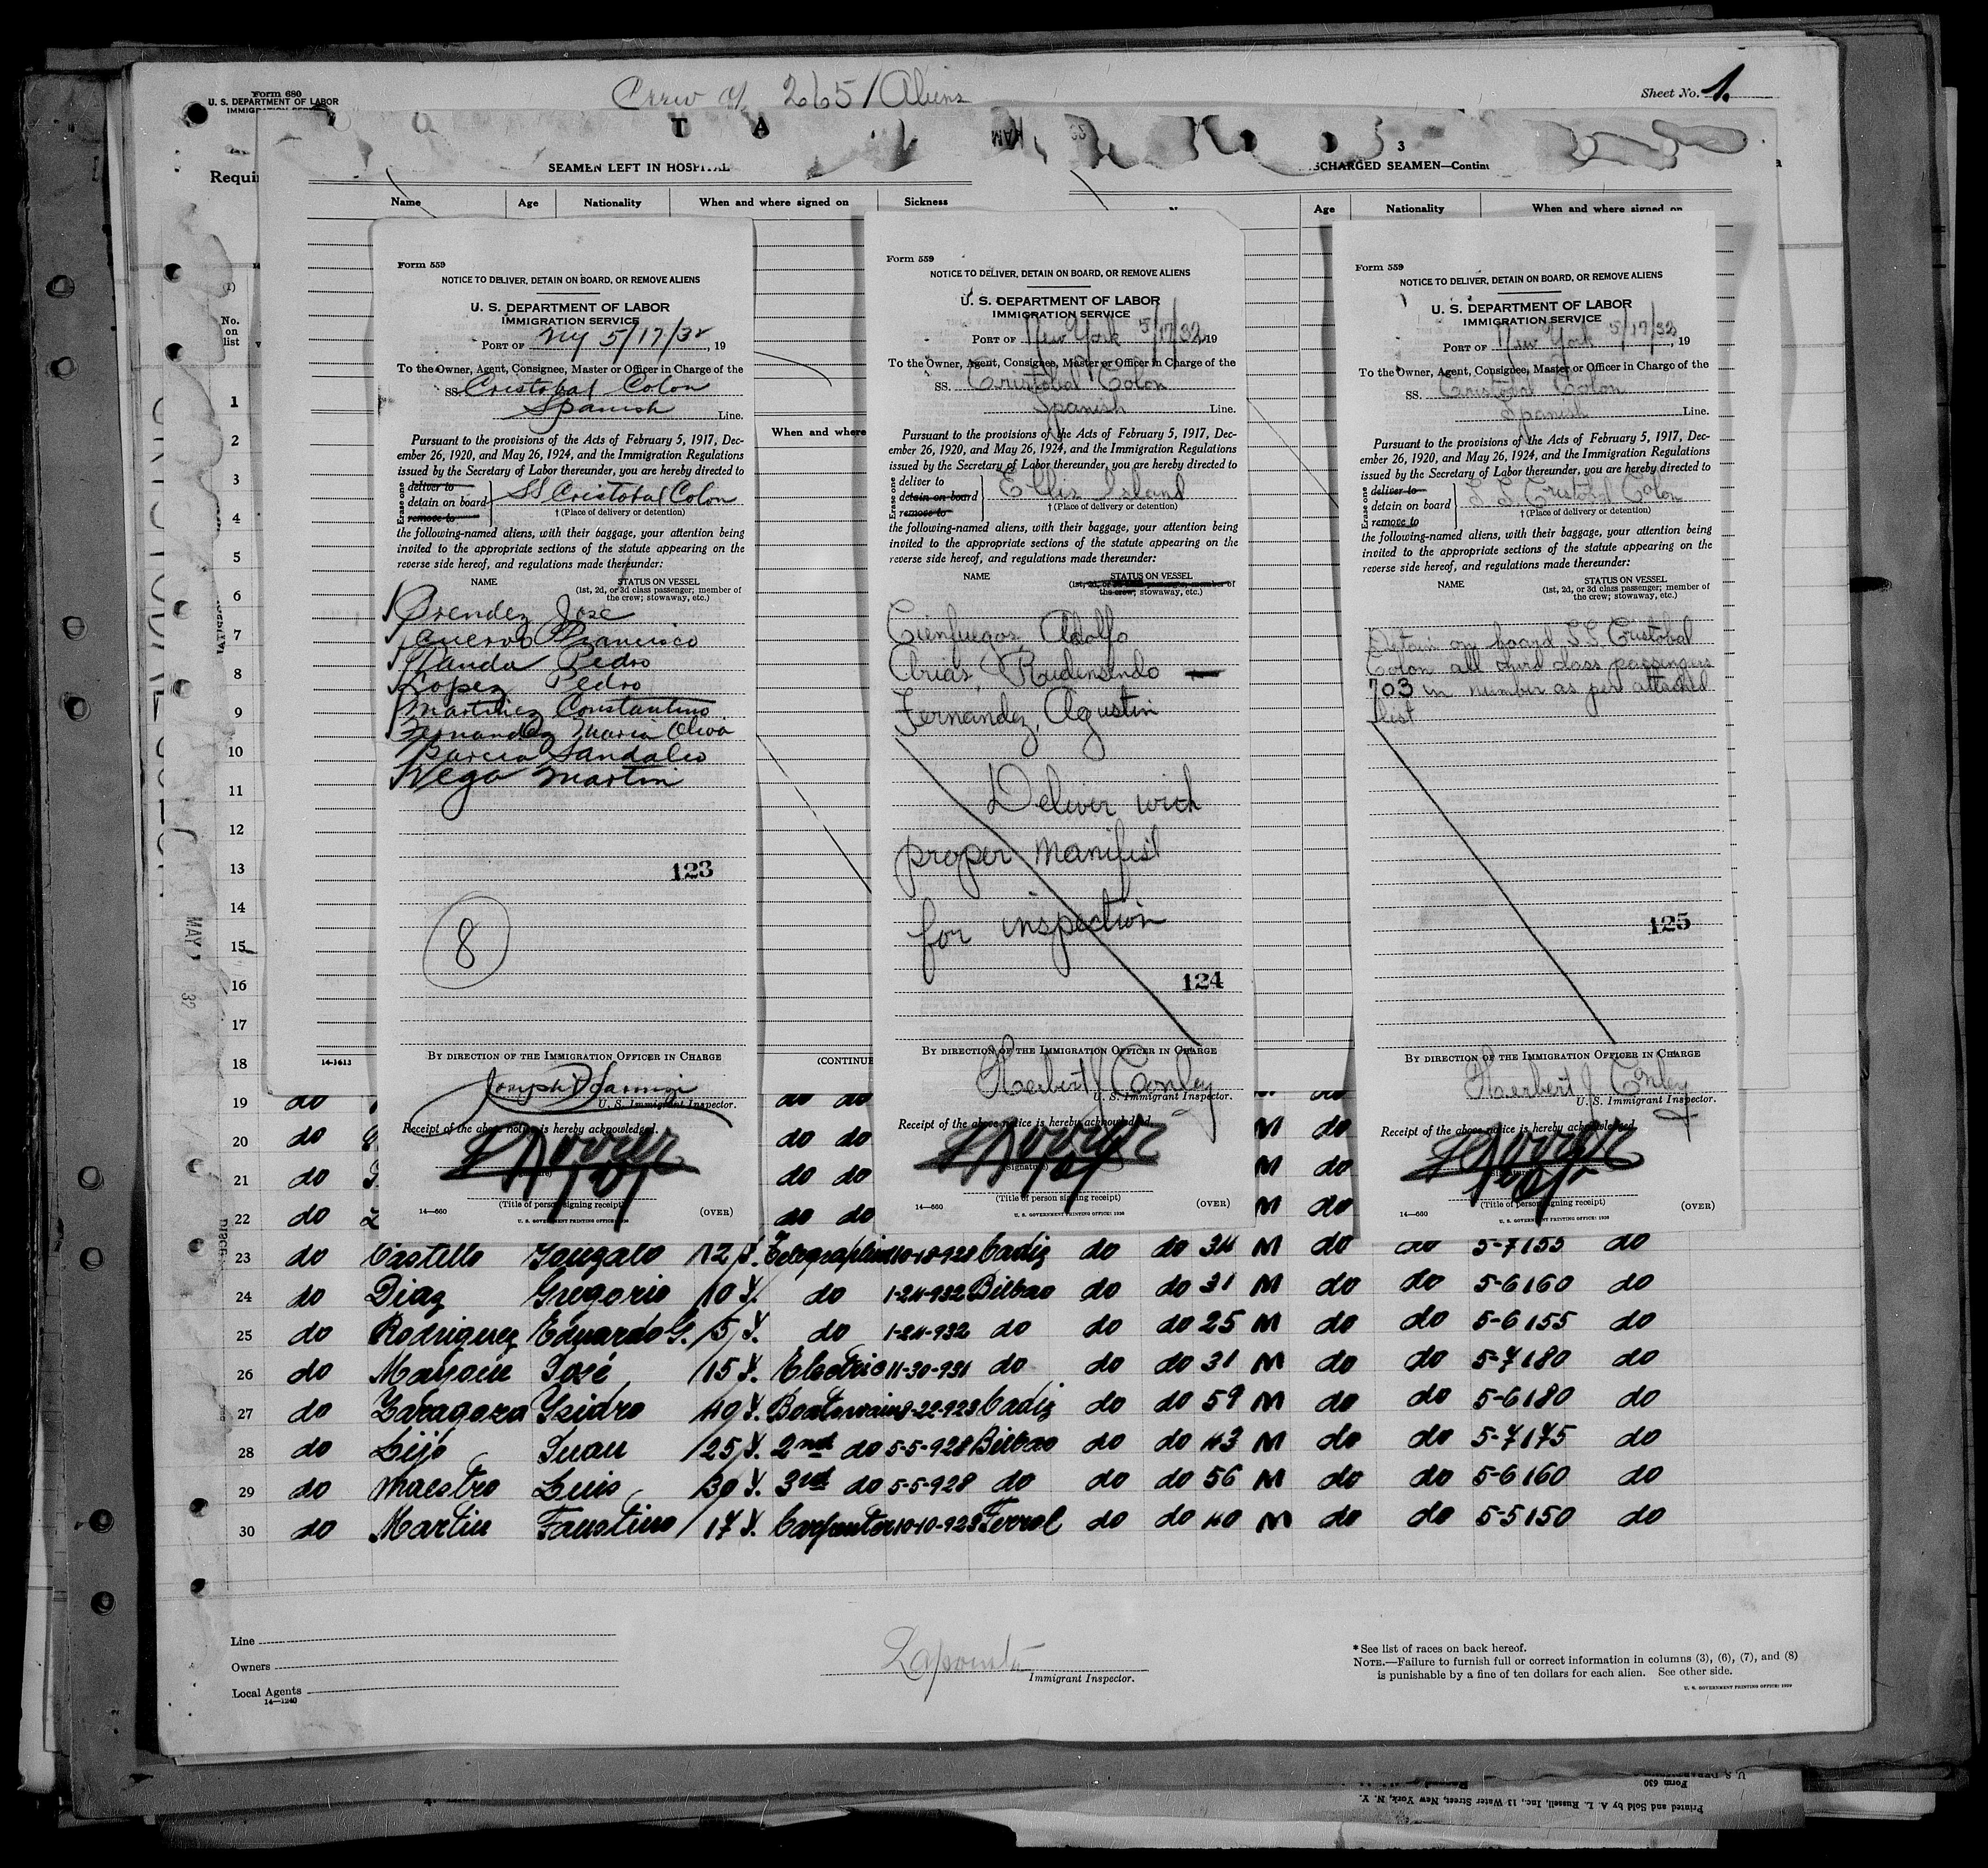 Form 680
U. S. DEPARTMENT OF LABOR
Crew of 265 / Aliens
Sheet No. 1.
T A
3
SEAMEN LEFT IN HOSPITAL
SCHARGED SEAMEN—Continu
Requi
Name Age Nationality When and where signed on Sickness
Age Nationality When and where signed on
No. on list
When and where
1
2
3
4
5
6
7
8
9
10
11
12
13
14
15
16
17
18
MAY
32
14-1613
(CONTINUE
Form 559
NOTICE TO DELIVER, DETAIN ON BOARD, OR REMOVE ALIENS
U. S. DEPARTMENT OF LABOR
IMMIGRATION SERVICE
PORT OF NY 5/17/32, 19
To the Owner, Agent, Consignee, Master or Officer in Charge of the
SS. Cristobal Colon
Spanish Line.
Pursuant to the provisions of the Acts of February 5, 1917, Dec-
ember 26, 1920, and May 26, 1924, and the Immigration Regulations
issued by the Secretary of Labor thereunder, you are hereby directed to
Erase one
deliver to
detain on board SS Cristobal Colon
remove to † (Place of delivery or detention)
the following-named aliens, with their baggage, your attention being
invited to the appropriate sections of the statute appearing on the
reverse side hereof, and regulations made thereunder:
NAME STATUS ON VESSEL
(1st, 2d, or 3d class passenger; member of
the crew; stowaway, etc.)
Prendez Jose
Cuervo Francisco
Panda Pedro
Lopez Pedro
Martinez Constantino
Fernandez Maria Oliva
Garcia Sandalio
Vega Martin
123
8
BY DIRECTION OF THE IMMIGRATION OFFICER IN CHARGE
Joseph
U. S. Immigrant Inspector.
Receipt of the above notice is hereby acknowledged.
(Title of person signing receipt)
14—660 (OVER)
U. S. GOVERNMENT PRINTING OFFICE:
Form 559
NOTICE TO DELIVER, DETAIN ON BOARD, OR REMOVE ALIENS
U. S. DEPARTMENT OF LABOR
IMMIGRATION SERVICE
PORT OF New York 5/17/32, 19
To the Owner, Agent, Consignee, Master or Officer in Charge of the
SS. Cristobal Colon
Spanish Line.
Pursuant to the provisions of the Acts of February 5, 1917, Dec-
ember 26, 1920, and May 26, 1924, and the Immigration Regulations
issued by the Secretary of Labor thereunder, you are hereby directed to
Erase one
deliver to
detain on board Ellis Island
remove to † (Place of delivery or detention)
the following-named aliens, with their baggage, your attention being
invited to the appropriate sections of the statute appearing on the
reverse side hereof, and regulations made thereunder:
NAME STATUS ON VESSEL
(1st, 2d, or 3d class passenger, member of
the crew; stowaway, etc.)
Cienfuegos, Adolfo
Arias, Rudensindo
Fernandez, Agustin
Deliver with
proper manifest
for inspection
124
BY DIRECTION OF THE IMMIGRATION OFFICER IN CHARGE
Herbert J Conley
U. S. Immigrant Inspector.
Receipt of the above notice is hereby acknowledged.
(Signature)
(Title of person signing receipt)
14—660 (OVER)
U. S. GOVERNMENT PRINTING OFFICE:
Form 559
NOTICE TO DELIVER, DETAIN ON BOARD, OR REMOVE ALIENS
U. S. DEPARTMENT OF LABOR
IMMIGRATION SERVICE
PORT OF New York 5/17/32, 19
To the Owner, Agent, Consignee, Master or Officer in Charge of the
SS. Cristobal Colon
Spanish Line.
Pursuant to the provisions of the Acts of February 5, 1917, Dec-
ember 26, 1920, and May 26, 1924, and the Immigration Regulations
issued by the Secretary of Labor thereunder, you are hereby directed to
Erase one
deliver to
detain on board S.S. Cristobal Colon
remove to † (Place of delivery or detention)
the following-named aliens, with their baggage, your attention being
invited to the appropriate sections of the statute appearing on the
reverse side hereof, and regulations made thereunder:
NAME STATUS ON VESSEL
(1st, 2d, or 3d class passenger; member of
the crew; stowaway, etc.)
Detain on board S.S. Cristobal
Colon all third class passengers
703 in number as per attached
list
125
BY DIRECTION OF THE IMMIGRATION OFFICER IN CHARGE
Herbert J Conley
U. S. Immigrant Inspector.
Receipt of the above notice is hereby acknowledged.
(Title of person signing receipt)
14—660 (OVER)
U. S. GOVERNMENT PRINTING OFFICE:
19 do do do do
20 do do do M do
21 do do do M do
22 do do do M do
23 do Castello Gonzalo 12 y. 10-18-928 Cadiz do do 34 M do do 5-7 155 do
24 do Diaz Gregorio 10 y. do 1-24-932 Bilbao do do 31 M do do 5-6 160 do
25 do Rodriguez Eduardo G. 5 y. do 1-24-932 do do do 25 M do do 5-6 155 do
26 do José 15 y. Electric 11-30-931 do do do 31 M do do 5-7 180 do
27 do Zaragoza Ysidro 40 y. Boatswain 9-22-923 Cadiz do do 59 M do do 5-6 180 do
28 do Lijo Juan 25 y. 2nd do 5-5-928 Bilbao do do 43 M do do 5-7 175 do
29 do Maestro Luis 30 y. 3rd do 5-5-928 do do do 56 M do do 5-6 160 do
30 do Martin Faustino 17 y. Carpenter 10-10-923 Ferrol do do 40 M do do 5-5 150 do
Line
Owners
Local Agents
14—1240
Immigrant Inspector.
* See list of races on back hereof.
NOTE.—Failure to furnish full or correct information in columns (3), (6), (7), and (8)
is punishable by a fine of ten dollars for each alien. See other side.
U. S. GOVERNMENT PRINTING OFFICE: 1929
Form 630
Printed and Sold by A. L. Russell, Inc., 13 Water Street, New York, N. Y.